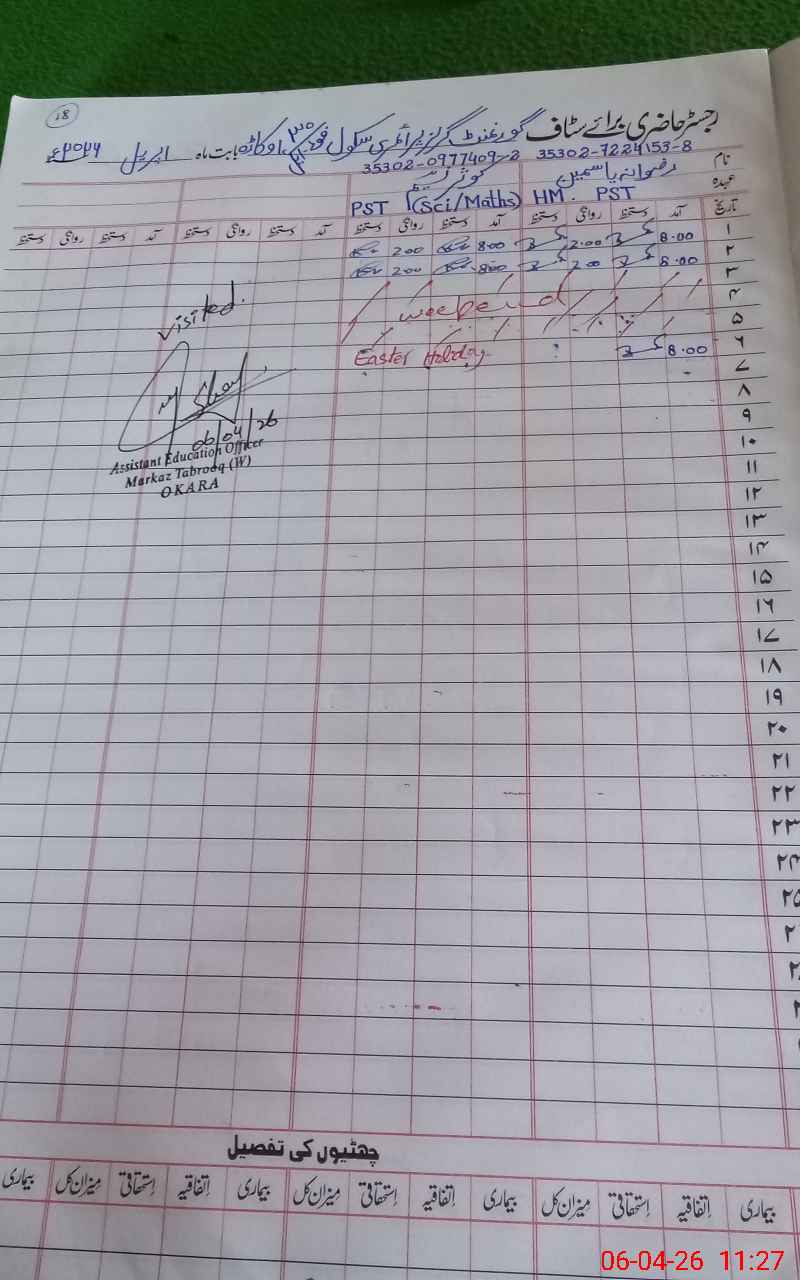 18
رجسٹر حاضری برائے سٹاف گورنمنٹ گرلز پرائمری سکول اوکاڑہ بابت ماہ اپریل ۲۰۲۶ء
35302-7224153-8 35302-0977409-2
نام رضوانہ یاسمین کوثر
عہدہ PST HM. PST (Sci/Maths)
تاریخ آمد دستخط روانگی دستخط آمد دستخط روانگی دستخط آمد دستخط روانگی دستخط آمد دستخط روانگی دستخط
۱ 8.00 2.00 800 200
۲ 8.00 200 800 200
۳
۴ weekend
۵
۶ 8.00 Easter Holiday
۷
۸
۹
۱۰
۱۱
۱۲
۱۳
۱۴
۱۵
۱۶
۱۷
۱۸
۱۹
۲۰
۲۱
۲۲
۲۳
۲۴
۲۵
Visited.
06/04/26
Assistant Education Officer
Markaz Tabrooq (W)
OKARA
چھٹیوں کی تفصیل
بیماری اتفاقیہ استحقاقی میزان کل بیماری اتفاقیہ استحقاقی میزان کل بیماری اتفاقیہ استحقاقی میزان کل بیماری
06-04-26 11:27